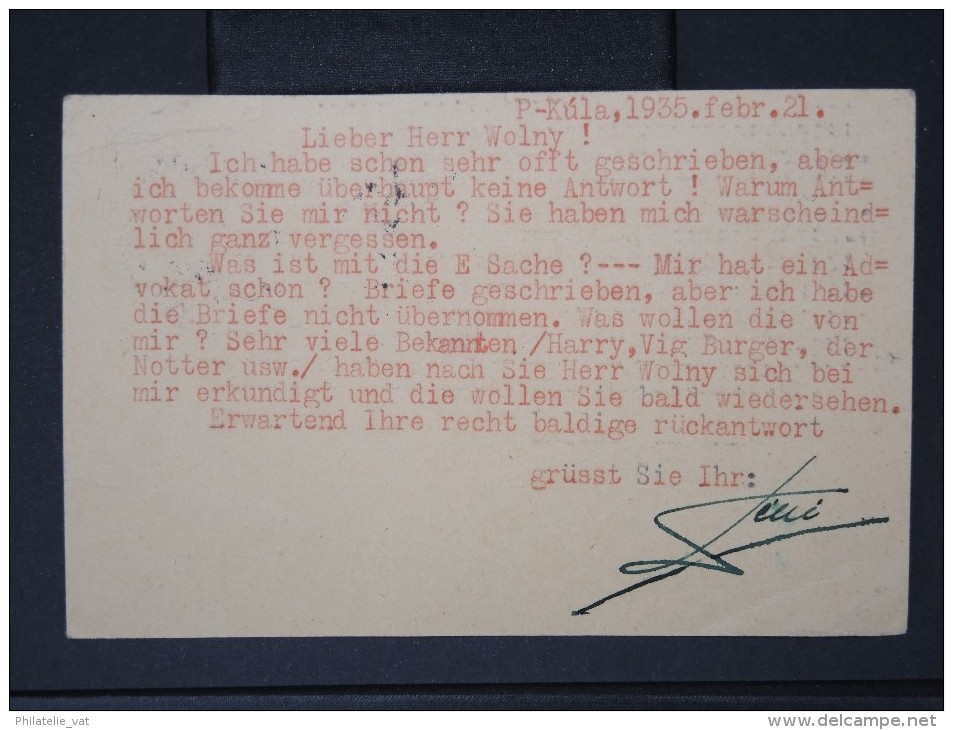 P-Kúla,1935.febr.21.
Lieber Herr Wolny !
Ich habe schon sehr offt geschrieben, aber
ich bekomme überhaupt keine Antwort ! Warum Ant=
worten Sie mir nicht ? Sie haben mich warscheind=
lich ganz vergessen.
Was ist mit die E Sache ?--- Mir hat ein Ad=
vokat schon ? Briefe geschrieben, aber ich habe
die Briefe nicht übernommen. Was wollen die von
mir ? Sehr viele Bekannten /Harry,Vig Burger, der
Notter usw./ haben nach Sie Herr Wolny sich bei
mir erkundigt und die wollen Sie bald wiedersehen.
Erwartend Ihre recht baldige rückantwort
grüsst Sie Ihr:
Philatelie_vat
www.delcampe.net